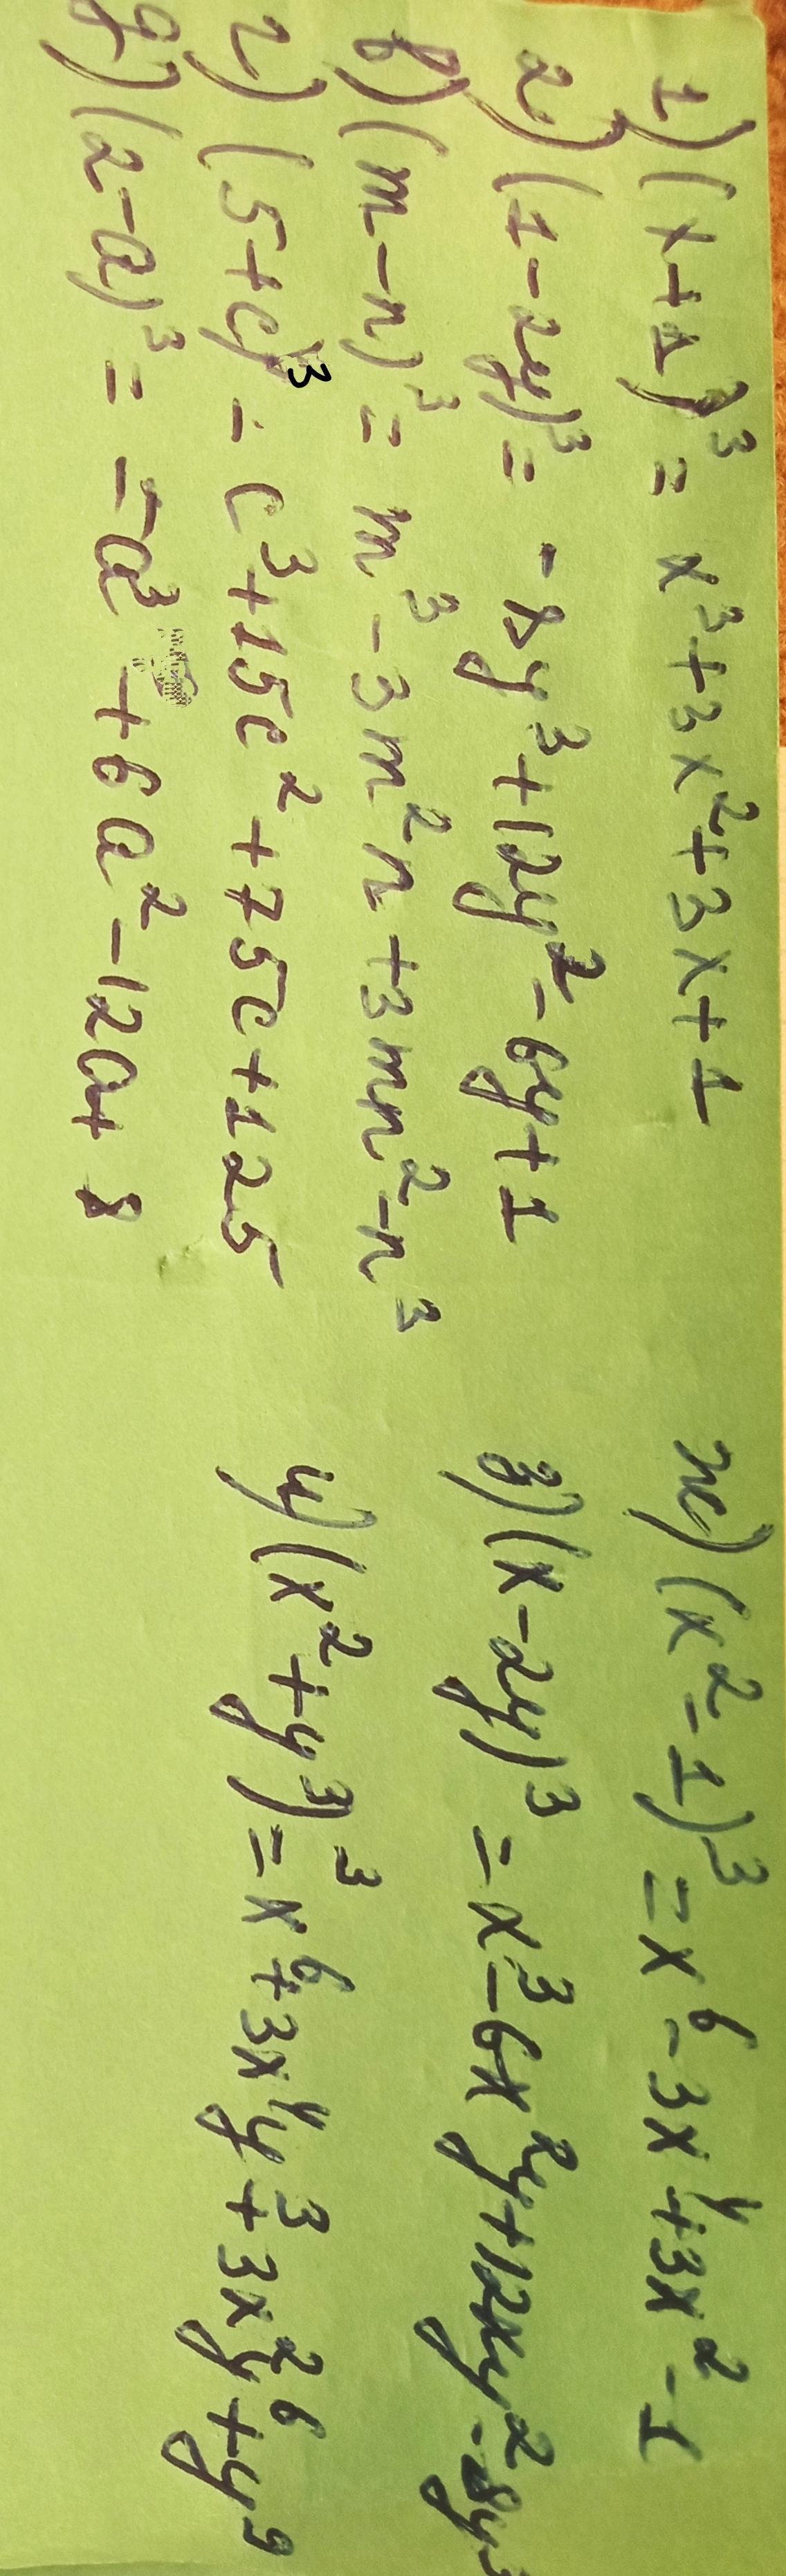 1) (x+1)³ = x³+3x²+3x+1
2) (1-2y)³ = -8y³+12y²-6y+1
в) (m-n)³ = m³-3m²n+3mn²-n³
г) (5+c)³ = c³+15c²+75c+125
д) (2-a)³ = -a³+6a²-12a+8
ж) (x²-1)³ = x⁶-3x⁴+3x²-1
з) (x-2y)³ = x³-6x²y+12xy²-8y³
и) (x²+y³)³ = x⁶+3x⁴y³+3x²y⁶+y⁹